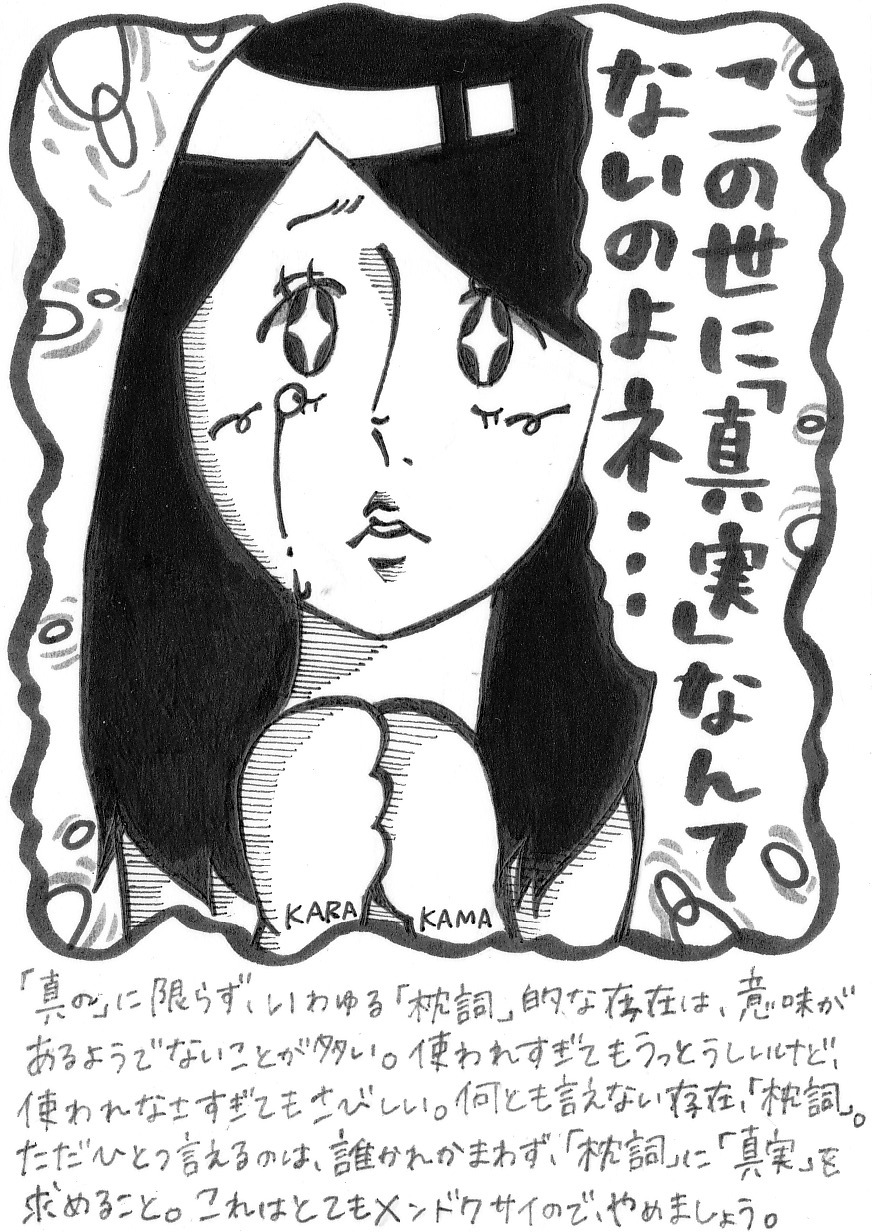 この世に「真実」なんて
ないのよネ…
KARA
KAMA
「真の」に限らず、いわゆる「枕詞」的な存在は、意味が
あるようでないことが多い。使われすぎてもうっとうしいけど、
使われなさすぎてもさびしい。何とも言えない存在、「枕詞」。
ただひとつ言えるのは、誰かれかまわず、「枕詞」に「真実」を
求めること。これはとてもメンドクサイので、やめましょう。